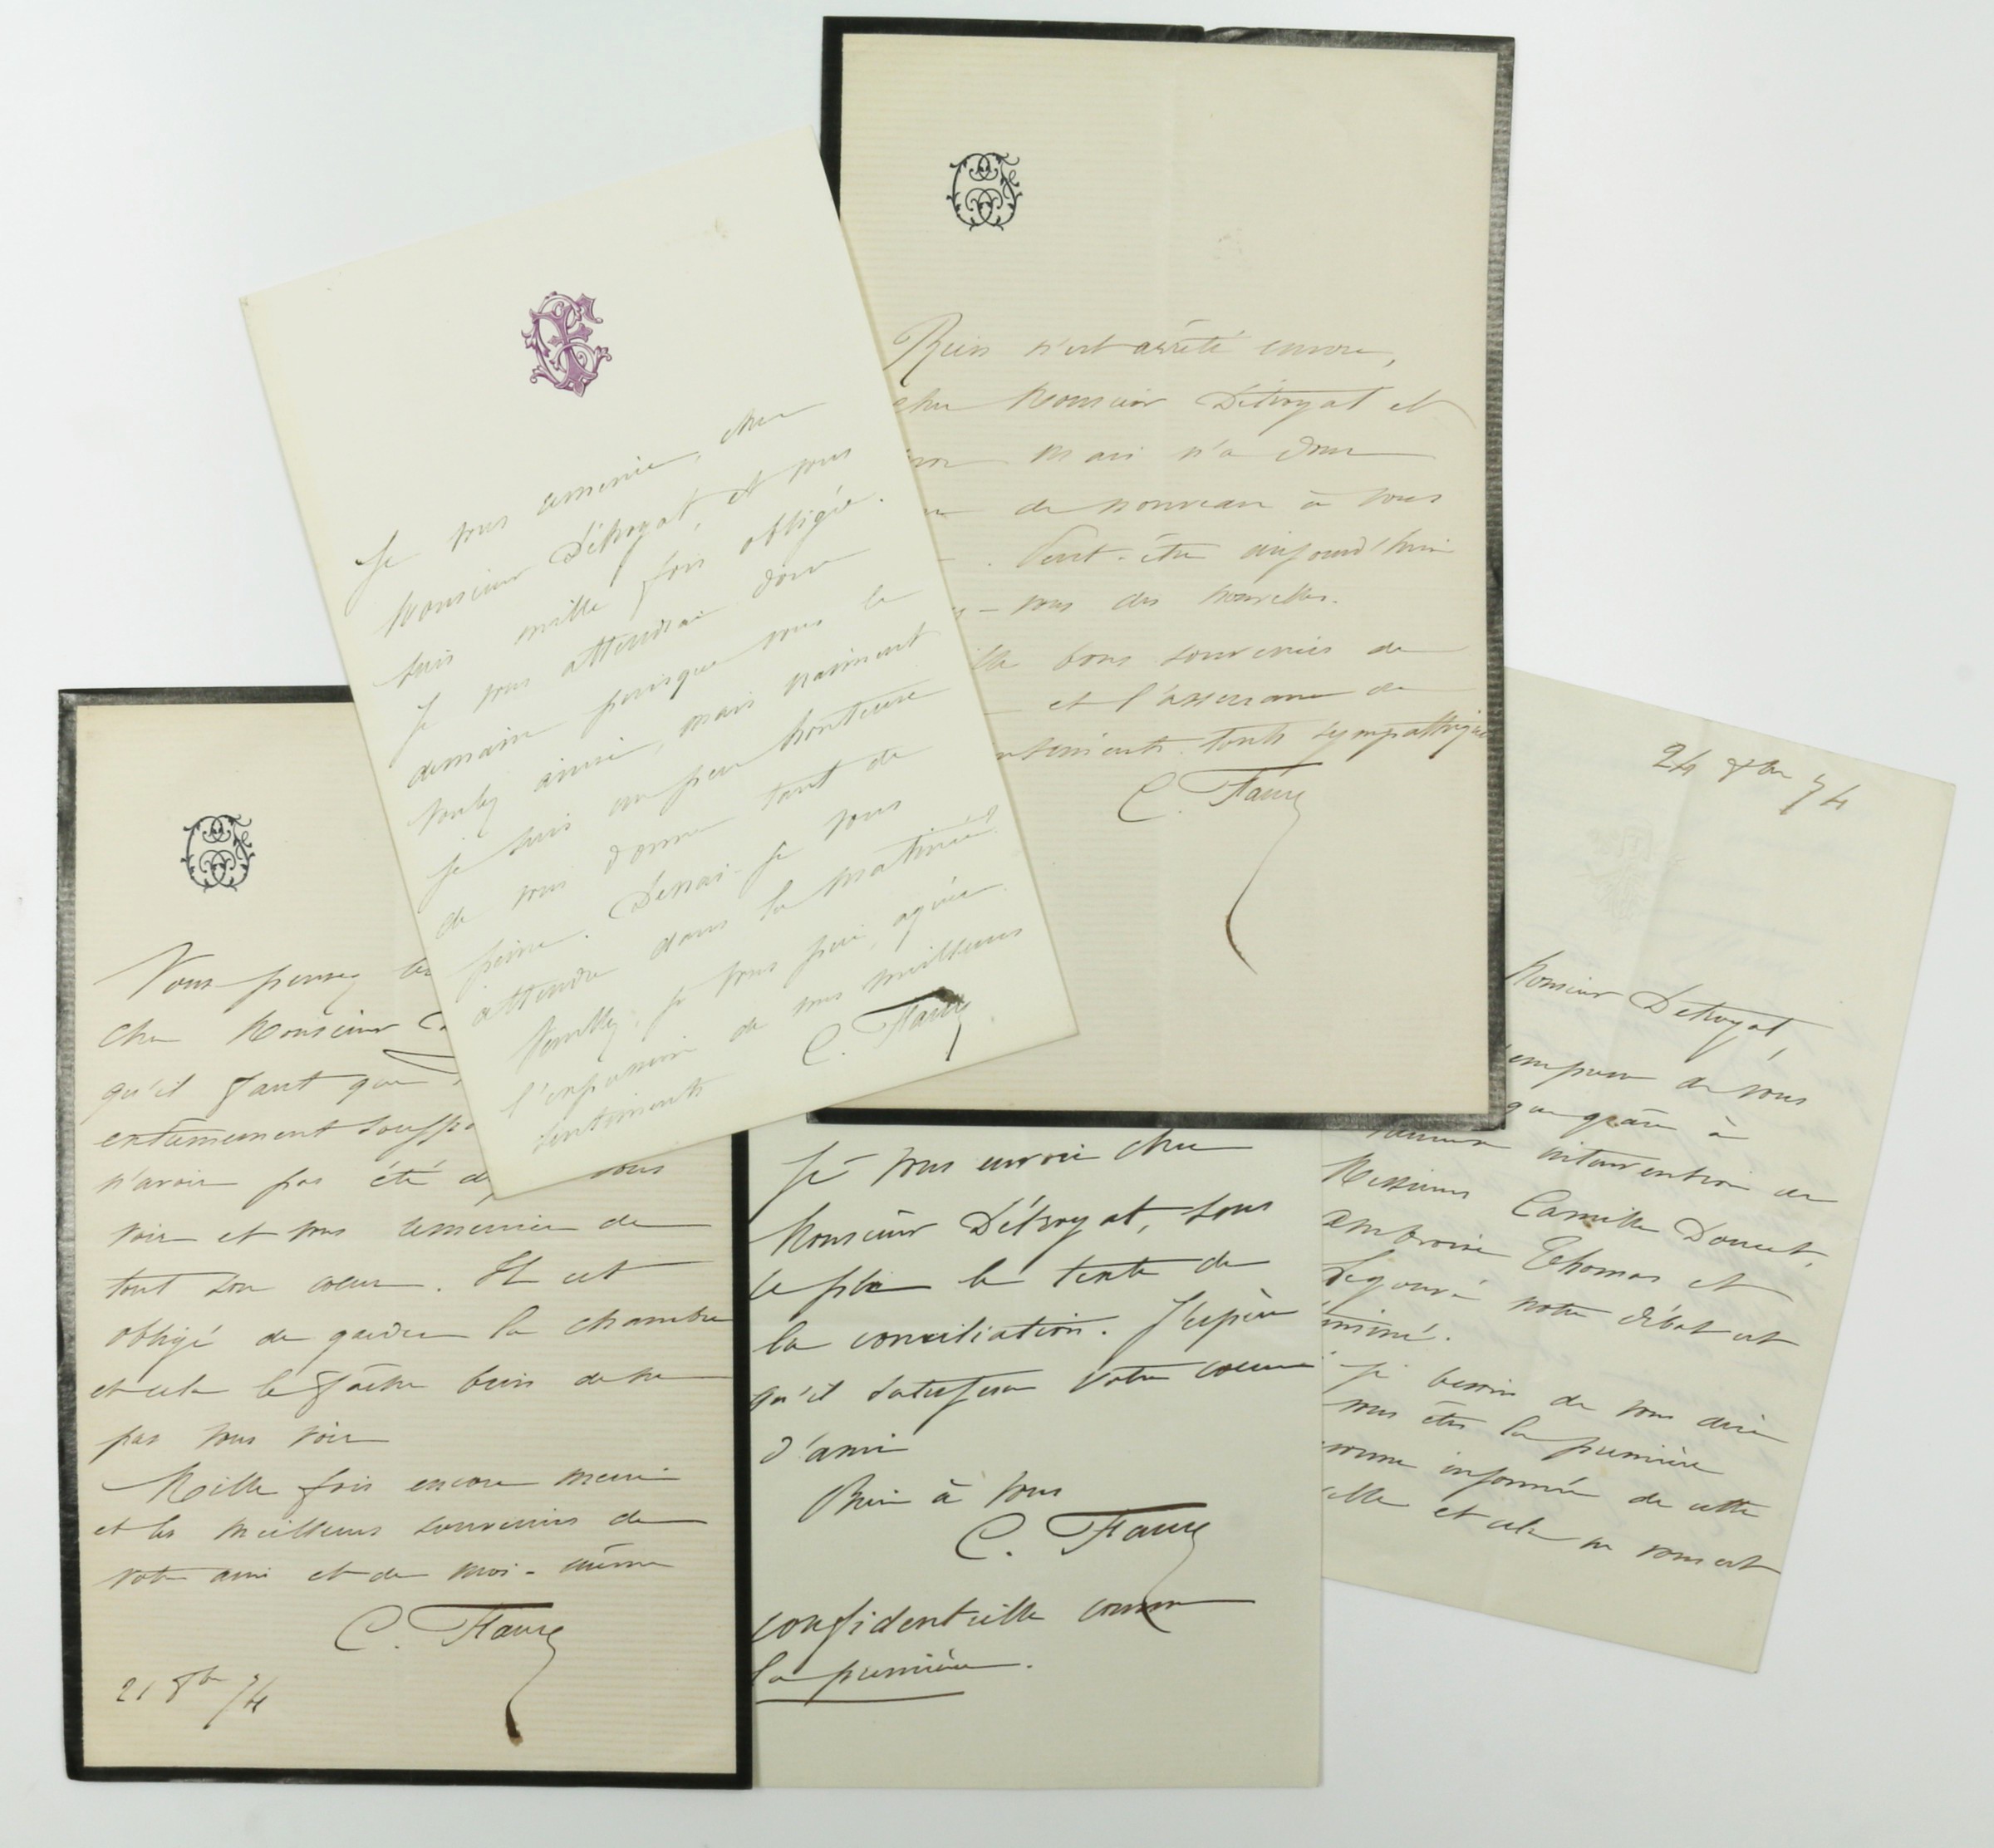 Je vous remercie, cher
Monsieur Détroyat, et vous
suis mille fois obligée.
Je vous attendrai donc
demain puisque vous le
voulez ainsi, mais vraiment
je suis un peu honteuse
de vous donner tant de
peine. Devrai-je vous
attendre dans la matinée?
Veuillez, je vous prie, agréer
l'expression de mes meilleurs
sentiments
C. Faure
Rien n'est arrêté encore,
cher Monsieur Détroyat et
mon mari n'a donc
de nouveau à vous
Peut-être aujourd'hui
vous des nouvelles.
bons souvenirs de
et l'assurance de
sentiments touts sympathiques
C. Faure
Vous pensez
cher Monsieur
qu'il faut que
extrêmement souff
n'avoir pas été vous
voir et vous remercier de
tout son coeur. Il est
obligé de garder la chambre
et cela le fâche bien de ne
pas vous voir
Mille fois encore merci
et les meilleurs souvenirs de
votre ami et de moi-même
C. Faure
21 8bre 74
Je vous envoie cher
Monsieur Détroyat, sous
ce pli le texte de
la conciliation. J'espère
qu'il satisfera votre coeur
d'ami
Bien à vous
C. Faure
confidentielle comme
la première.
24 8bre 74
Monsieur Détroyat,
empresse de vous
que grâce à
intervention de
Messieurs Camille Doucet,
Ambroise Thomas et
Legouvé notre débat est
terminé.
besoin de vous dire
vous êtes la première
informée de cette
et cela ne vous est